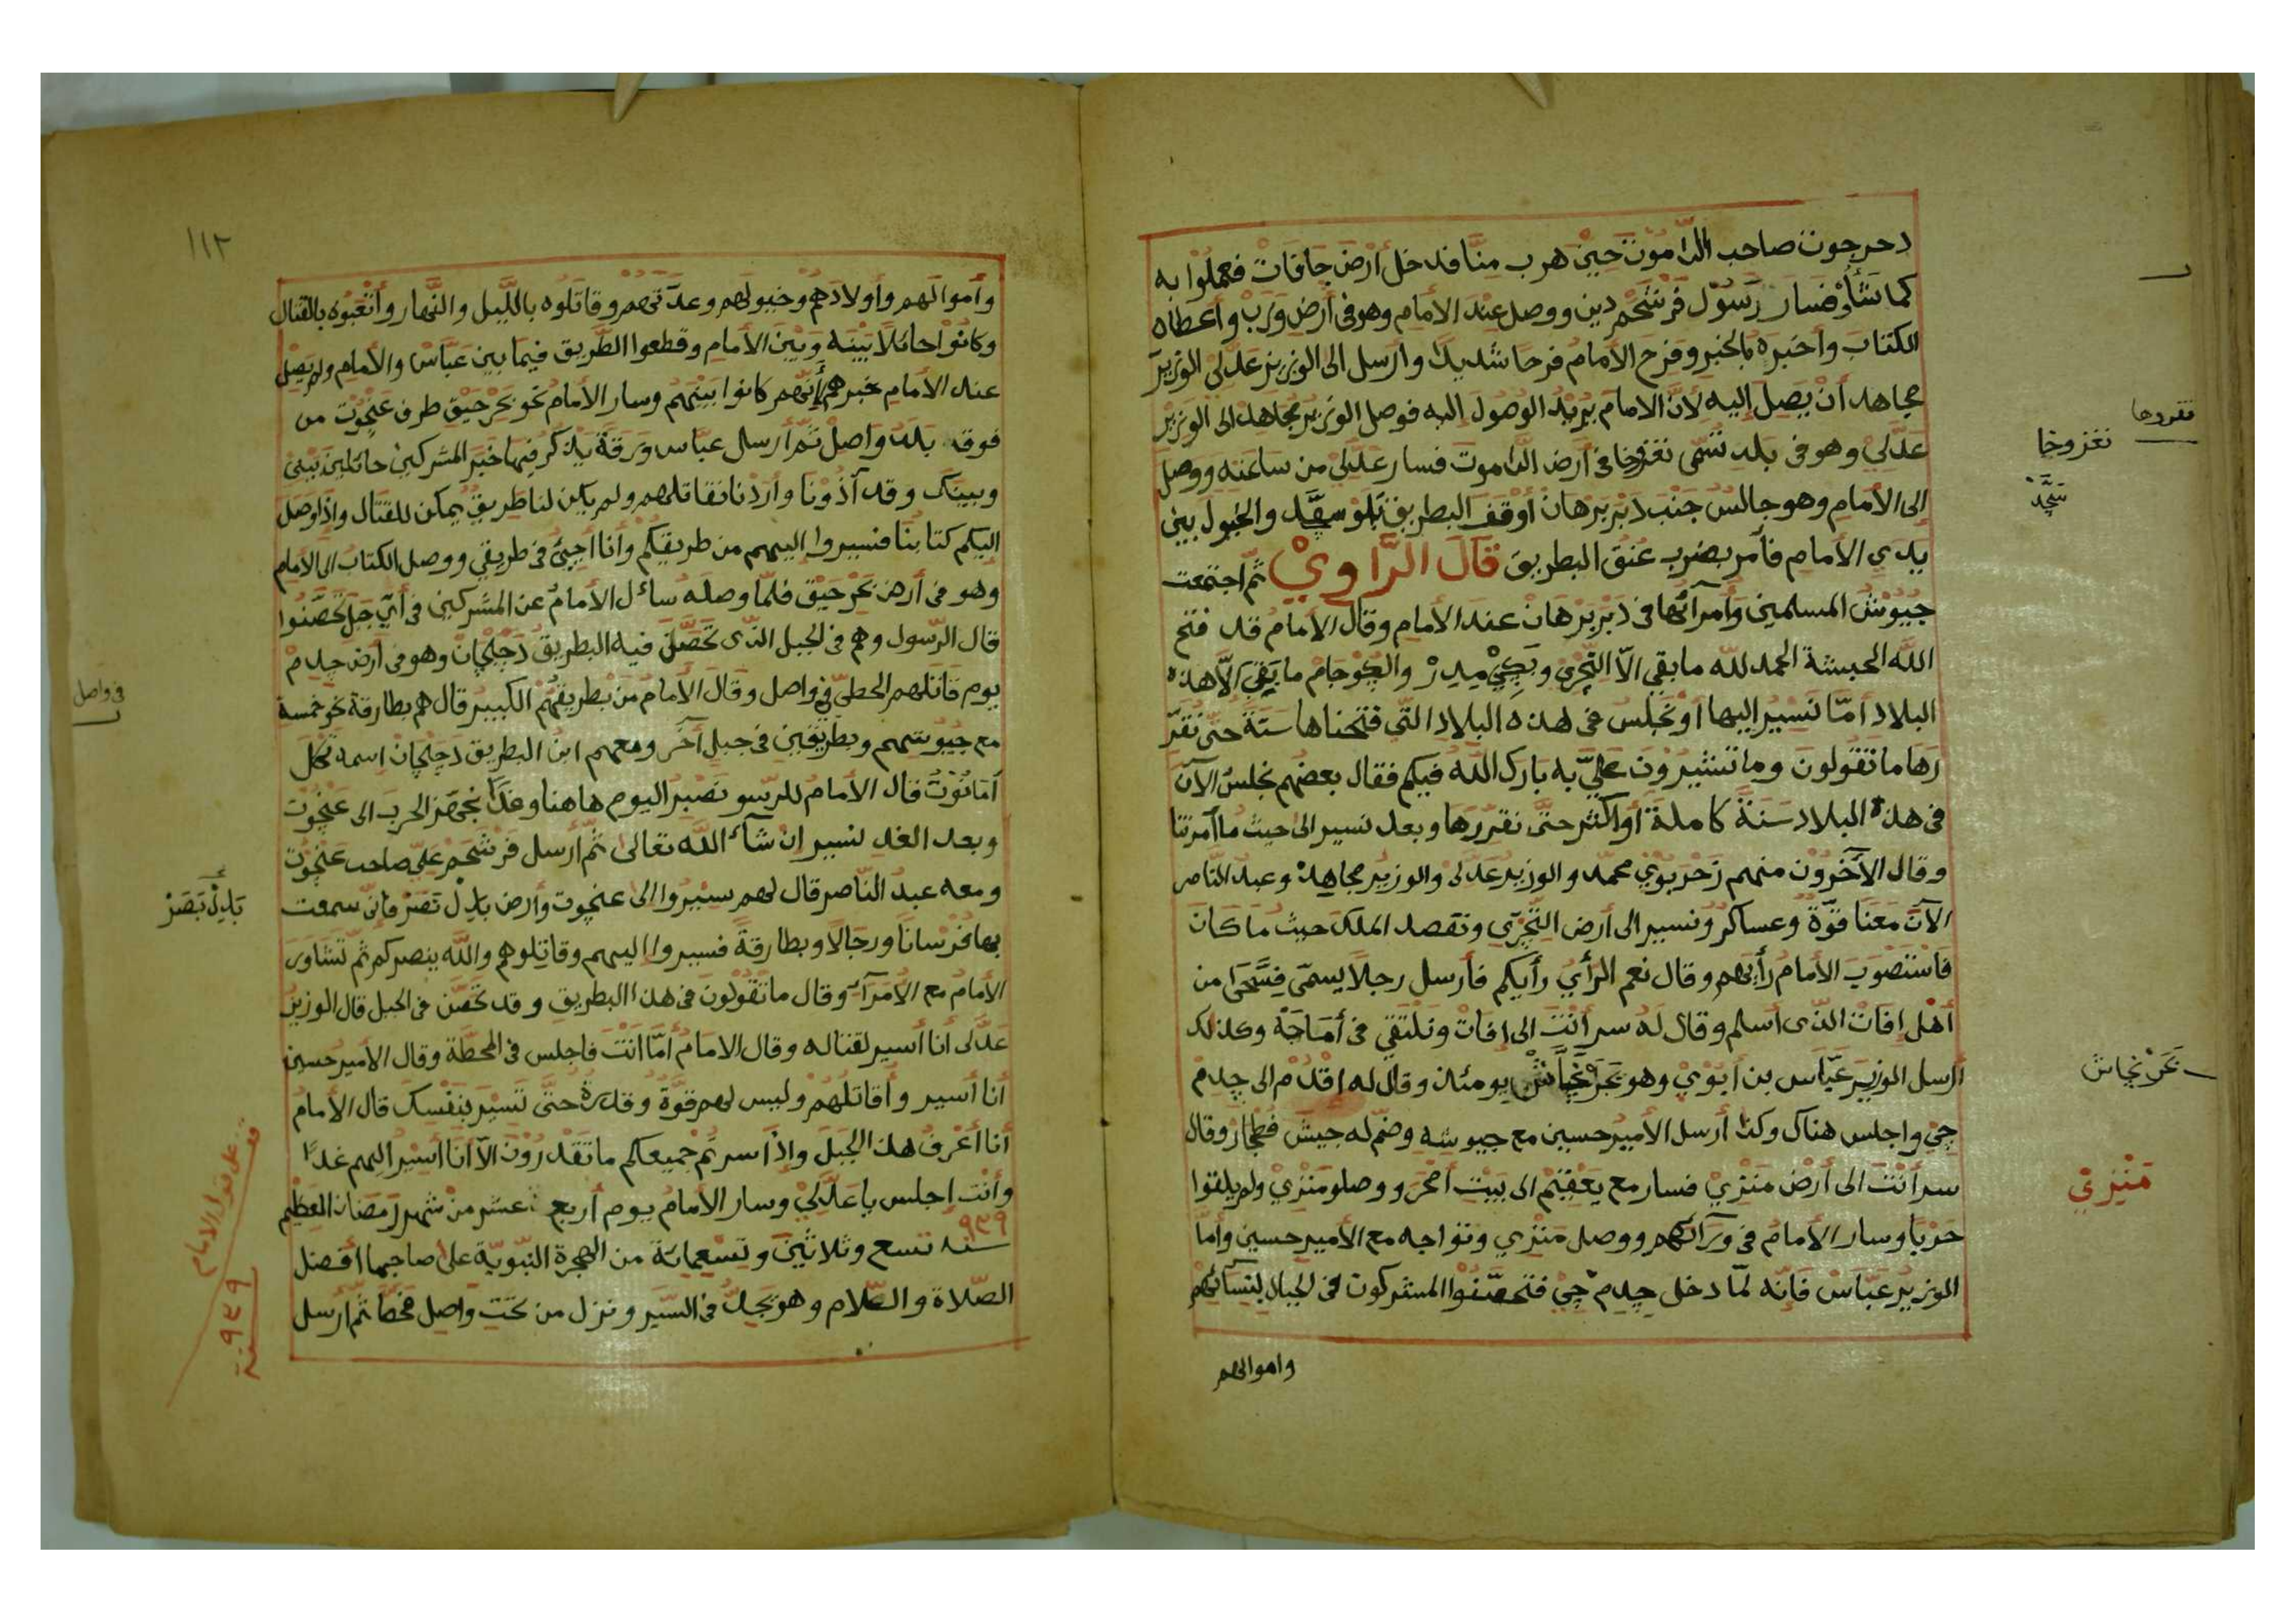 دحرجوت صاحب الدّاموت حين هرب منّا فدخل أرض جافات فعملوا به
كما شأؤ فسار رسول فرشحم دين ووصل عند الأمام وهو في أرض ورب وأعطاه
الكتاب وأخبره بالخبر وفرح الأمام فرحا شديدا وأرسل الى الوزير عدلي الوزير
مجاهد أن يصل إليه لأنّ الامام يريد الوصول إليه فوصل الوزير مجاهد الى الوزير
عدلي وهو في بلد تسمّى نغزوخا في أرض الدّاموت فسار عدلي من ساعته ووصل
إلى الأمام وهو جالس جنب دبر برهان أوقف البطريق والخيول بين
يدي الأمام فأمر بضرب عنق البطريق قال الرّاويْ ثم اجتمعت
جيوش المسلمين وأمرآئها في دبر برهان عند الأمام وقال الأمام قد فتح
اللّه الحبشة الحمد للّه ما بقي الاّ التّجري وبجي مدر والجوجام ما بقي الاّ هذه
البلاد امّا نسير إليها او نجلس في هذه البلاد التّي فتحناها سنة حتّى نقرّ
رها ما تقولون وما تشيرون عليّ به بارك اللّه فيكم فقال بعضهم نجلس الآن
في هذه البلاد سنة كاملة أو اكثر حتّى نقررها وبعد نسير الى حيث ما آمرتنا
وقال الآخرون منهم زحربوي محمد والوزير عدلى والوزير مجاهد وعبد النّاصر
الآن معنا قوّة وعساكر ونسير الى أرض التّجري ونقصد الملك حيث ما كان
فاستصوب الأمام رأيهم وقال نعم الرأي رأيكم فأرسل رجلاً يسمّى فسّحرا من
أهل إفات الذّى أسلم وقال له سر أنت الى إفات ونلتقي في أماجة وكذلك
أرسل الوزير عبّاس بن أبوي وهو يومئذ وقال له اقدم الى جدم
جي واجلس هناك وكذا أرسل الأمير حسين مع جيوشه وضم له جيش فطجار وقال
سر أنت الى أرض منزي فسار مع يعقيم الى بيت أمحر ووصلو منزي ولم يلقوا
حربا وسار الأمام في ورآئهم ووصل منزي وتواجه مع الأمير حسين وأمّا
الوزير عبّاس فإنه لمّا دخل جدم جي فتحصّنوا المشركون في الجبال بنسآئهم
واموالهم
نقررها
نغزوخا
نحر نجاش
منزي
١١٢
وأموالهم وأولادهم وخيولهم وعدّتهم وقاتلوه بالليل والنّهار وأتعبوه بالقتال
وكانوا حائلاً بينه وبين الأمام وقطعوا الطّريق فيما بين عبّاس والأمام ولم يصل
عند الأمام خبرهم لأنّهم كانوا بينهم وسار الأمام نحو نحر حيق طرف عنجوت من
فوقه بلد واصل ثم أرسل عبّاس ورقة يذكر فيها خبر المشركين حائلين بينى
وبينك وقد آذونا وأردنا نقاتلهم ولم يكن لنا طريق يمكن للقتال وإذا وصل
اليكم كتابنا فسيروا إليهم من طريقكم وأنا اجيئ في طريقي ووصل الكتاب الى الأمام
وهو في أرض نحر حيق فلمّا وصله سائل الأمام عن المشركين في أي جبل تحصّنوا
قال الرّسول وهم في الجبل الذّى تحصّن فيه البطريق دجلجان وهو في أرض جدم
يوم قاتلهم الحطي في واصل وقال الأمام من بطريقهم الكبير قال هم بطارقة نحو خمسة
مع جيوشهم وبطريقين في جبل آخر ومعهم ابن البطريق دجلجان اسمه تكل
أمانوت قال الأمام للرسو نصبر اليوم هاهنا وغدا نجهز الحرب الى عنجوت
وبعد الغد نسير ان شآء اللّه تعالى ثمّ أرسل فرشحم علي صاحب عنجوت
ومعه عبد النّاصر قال لهم سيروا الى عنجوت وأرض بادل تصر فانّى سمعت
بها فرسانا ورجالا وبطارقة فسيروا إليهم وقاتلوهم واللّه ينصركم ثمّ تشاور
الأمام مع الأمرآء وقال ما تقولون في هذا البطريق وقد تحصّن في الجبل قال الوزير
عدلى أنا أسير لقتاله وقال الامام أمّا انت فاجلس في المحطّة وقال الأمير حسين
أنا أسير وأقاتلهم وليس لهم قوّة وقدرة حتّى تسير بنفسك قال الأمام
أنا أعرف هذا الجبل واذا سرتم جميعكم ما تقدرون الاّ أنا أسير إليهم غدا
وأنت إجلس يا عدلي وسار الأمام يوم أربع عشر من شهر رمضان العظيم
٩٣٩
سنه تسع وثلاثين وتسعمائة من الهجرة النبّويّة على صاحبها أفضل
الصّلاة والسّلام وهو يجدّ في السّير ونزل من تحت واصل فحطّا ثمّ أرسل
في واصل
سنة ٩٣٩